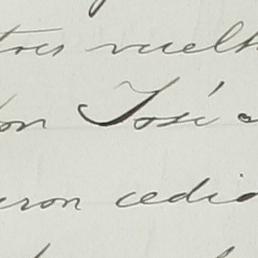 tres vuelt
on José a
eron cedio